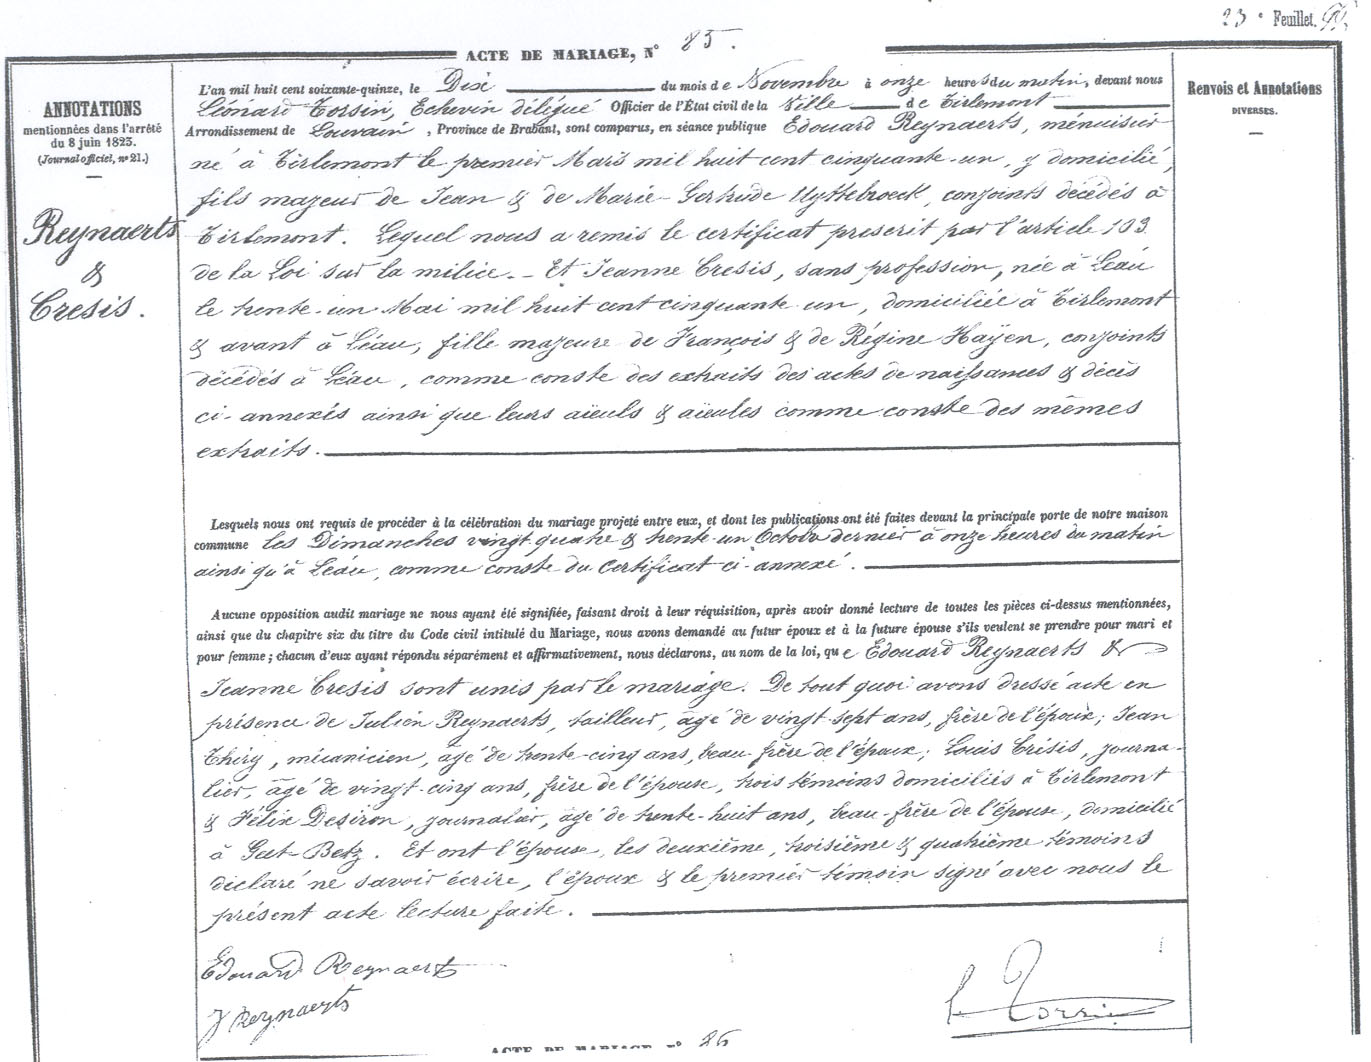 23e Feuillet.
ACTE DE MARIAGE, N° 85.
ANNOTATIONS
mentionnées dans l'arrêté
du 8 juin 1823.
(Journal officiel, n° 21.)
Reynaerts
&
Cresis.
Renvois et Annotations
DIVERSES.
L'an mil huit cent soixante-quinze, le Dix du mois de Novembre à onze heures du matin, devant nous
Léonard Torsin, Echevin délégué Officier de l'État civil de la Ville de Tirlemont
Arrondissement de Louvain, Province de Brabant, sont comparus, en séance publique Edouard Reynaerts, ménuisier
né à Tirlemont le premier Mars mil huit cent cinquante-un, y domicilié,
fils majeur de Jean & de Marie-Gertrude Uyttebroeck, conjoints décédés à
Tirlemont. Lequel nous a remis le certificat prescrit par l'article 103
de la Loi sur la milice. - Et Jeanne Cresis, sans profession, née à Léau
le trente-un Mai mil huit cent cinquante-un, domiciliée à Tirlemont
& avant à Léau, fille majeure de François & de Régine Haÿen, conjoints
décédés à Léau, comme conste des extraits des actes de naissances & décès
ci-annexés ainsi que leurs aïeuls & aïeules comme conste des mêmes
extraits.
Lesquels nous ont requis de procéder à la célébration du mariage projeté entre eux, et dont les publications ont été faites devant la principale porte de notre maison
commune les Dimanches vingt-quatre & trente-un Octobre dernier à onze heures du matin
ainsi qu'à Léau, comme conste du certificat ci-annexé.
Aucune opposition audit mariage ne nous ayant été signifiée, faisant droit à leur réquisition, après avoir donné lecture de toutes les pièces ci-dessus mentionnées,
ainsi que du chapitre six du titre du Code civil intitulé du Mariage, nous avons demandé au futur époux et à la future épouse s'ils veulent se prendre pour mari et
pour femme ; chacun d'eux ayant répondu séparément et affirmativement, nous déclarons, au nom de la loi, que Edouard Reynaerts &
Jeanne Cresis sont unis par le mariage. De tout quoi avons dressé acte en
présence de Julien Reynaerts, tailleur, âgé de vingt-sept ans, frère de l'époux ; Jean
Thiry, mécanicien, âgé de trente-cinq ans, beau-frère de l'époux ; Louis Crésis, journa-
lier, âgé de vingt-cinq ans, frère de l'épouse, trois témoins domiciliés à Tirlemont
& Félix Desiron, journalier, âgé de trente-huit ans, beau-frère de l'épouse, domicilié
à Gat-Betz. Et ont l'épouse, les deuxième, troisième & quatrième témoins
déclaré ne savoir écrire, l'époux & le premier témoin signé avec nous le
présent acte lecture faite.
Edouard Reynaerts
J Reynaerts
L Torsin
ACTE DE MARIAGE, N° 86